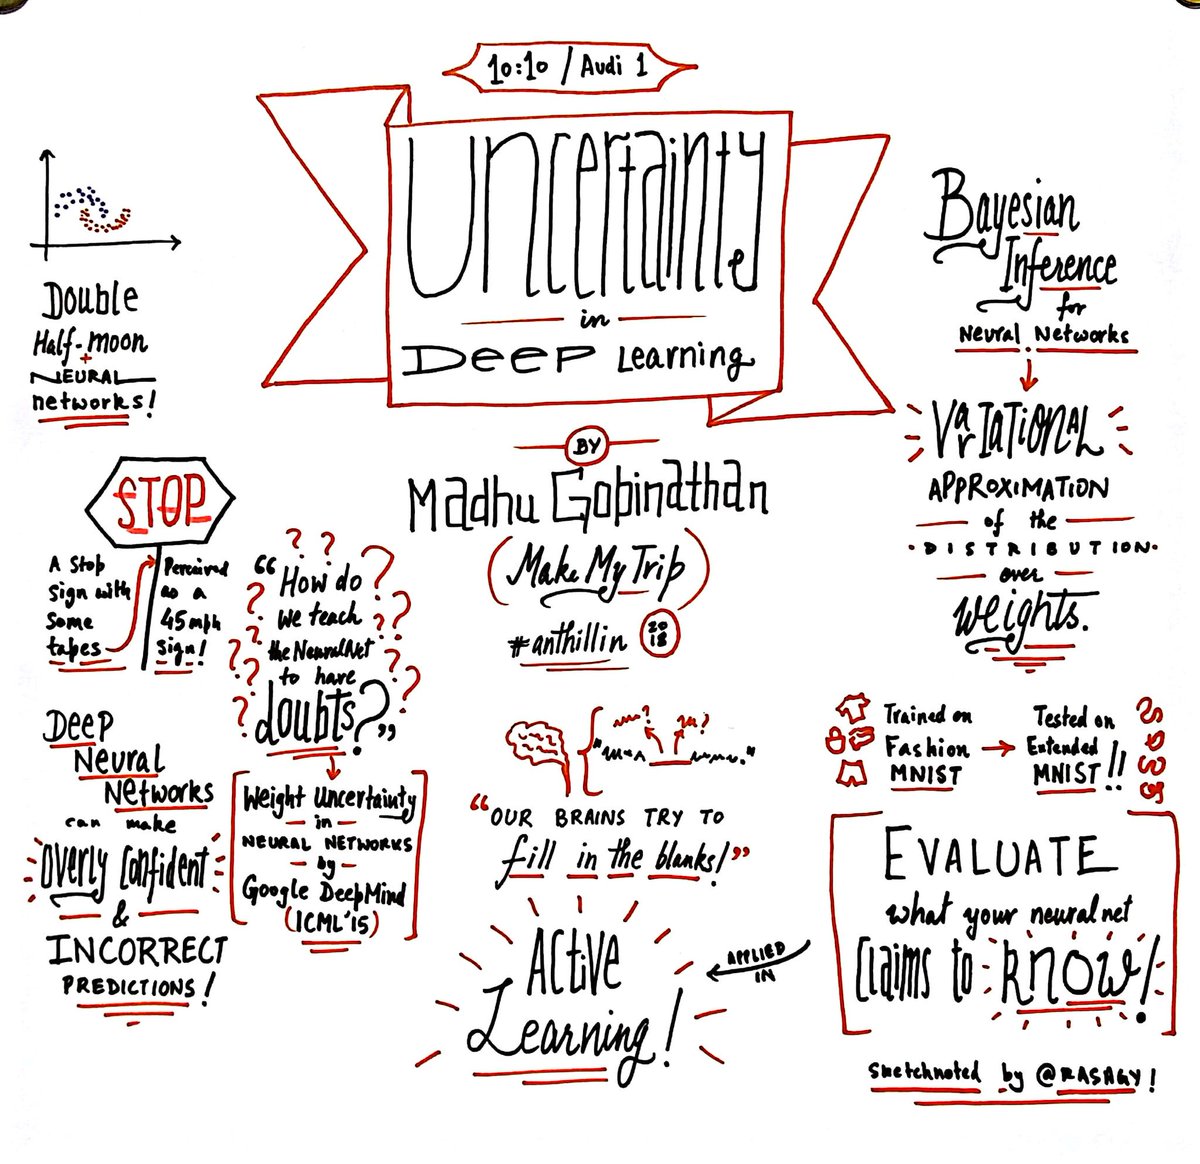 10:10 / Audi 1
Uncertainty
in
Deep Learning
BY
Madhu Gopinathan
(Make My Trip)
#anthillin 2018
Double
Half-moon
+
NEURAL
networks!
STOP
A Stop
Sign with
Some
tapes
Perceived
as a
45mph
Sign!
Deep
Neural
Networks
can make
Overly Confident
&
INCORRECT
PREDICTIONS!
? ? ?
“How do
we teach
the NeuralNet
to have
doubts?”
Weight Uncertainty
in
NEURAL NETWORKS
by
Google DeepMind
(ICML'15)
“OUR BRAINS TRY TO
fill in the blanks!”
Active
Learning!
APPLIED
IN
Bayesian
Inference
for
Neural Networks
VarIATIONAL
APPROXIMATION
of the
DISTRIBUTION
over
weights.
Trained on
Fashion
MNIST
Tested on
Extended
MNIST!!
EVALUATE
what your neural net
Claims to know!
Sketchnoted by @RASAGY!